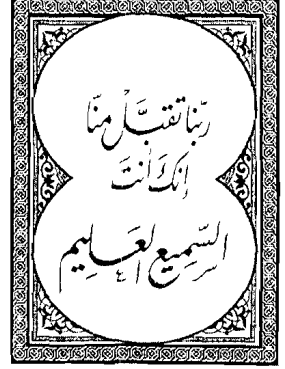 ربّنا تقبَّل منّا
إنكَ أنتَ
السّميع العليم